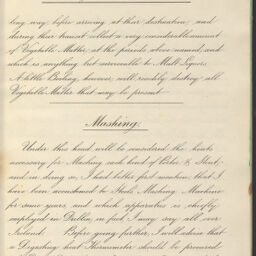 long way before arriving at their destination, and
during their transit collect a very considerable amount
of Vegetable Matter, at the periods above named, and
which is anything but serviceable to Malt Liquors.
A little Boiling, however, will readily destroy all
Vegetable Matter that may be present
Mashing.
Under this head will be considered the heats
necessary for Mashing each kind of Beer & Stout,
and in doing so, I had better first mention, that I
have been accustomed to Steel's Mashing Machine
for some years, and which apparatus is chiefly
employed in Dublin, in fact, I may say all over
Ireland. Before going further, I will advise that
a Registing heat Thermometer should be procured